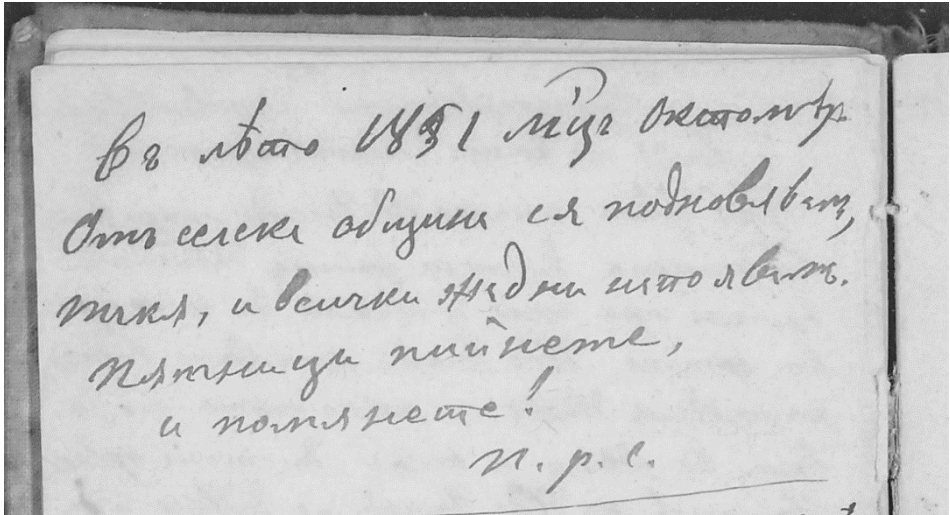 Въ лѣто 1851 м͠ць Октомвр.
Отъ селска община ся подновявамъ,
тъкя, и всички жедни напоявамъ.
пятници пийнете,
и помянете!
п. р. с.